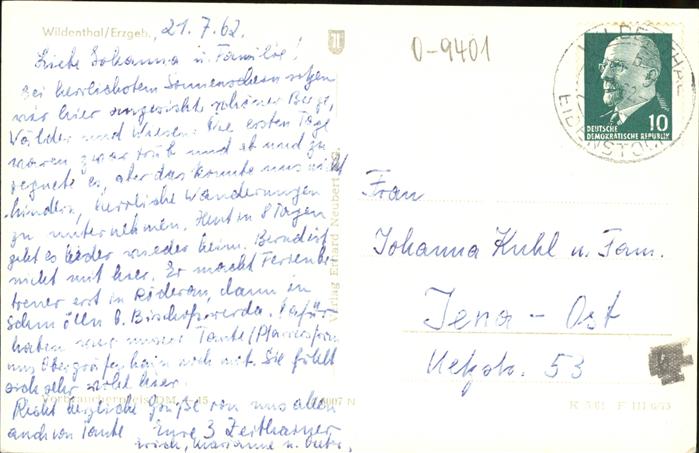 Wildenthal/Erzgeb. 21.7.62.
Liebe Johanna u. Familie!
Bei herrlichstem Sonnenschein sitzen
wir hier angesichts schöner Berge,
Wälder und Wiesen. Die ersten Tage
waren zwar trüb und ab und zu
regnete es, aber das konnte uns nicht
hindern, herrliche Wanderungen
zu unternehmen. Heut in 8 Tagen
geht es leider wieder heim. Bernd ist
nicht mit hier. Er macht Ferienbe-
treuer erst in Röderau, dann in
Schmölln b. Bischofswerda. Dafür
haben wir unsere Tante/Pfarrersfrau
aus Obergräfenhain noch mit. Sie fühlt
sich sehr wohl hier.
Verbraucherpreis DM
Recht herzliche Grüße von uns allen
auch von Tante Eure 3 Zeithainer
Marianne u.
Verlag Erhard Neubert
0-9401
WILDENTHAL
EIBENSTOCK
10
DEUTSCHE
DEMOKRATISCHE REPUBLIK
Frau
Johanna Kuhl u. Fam.
Jena - Ost
53